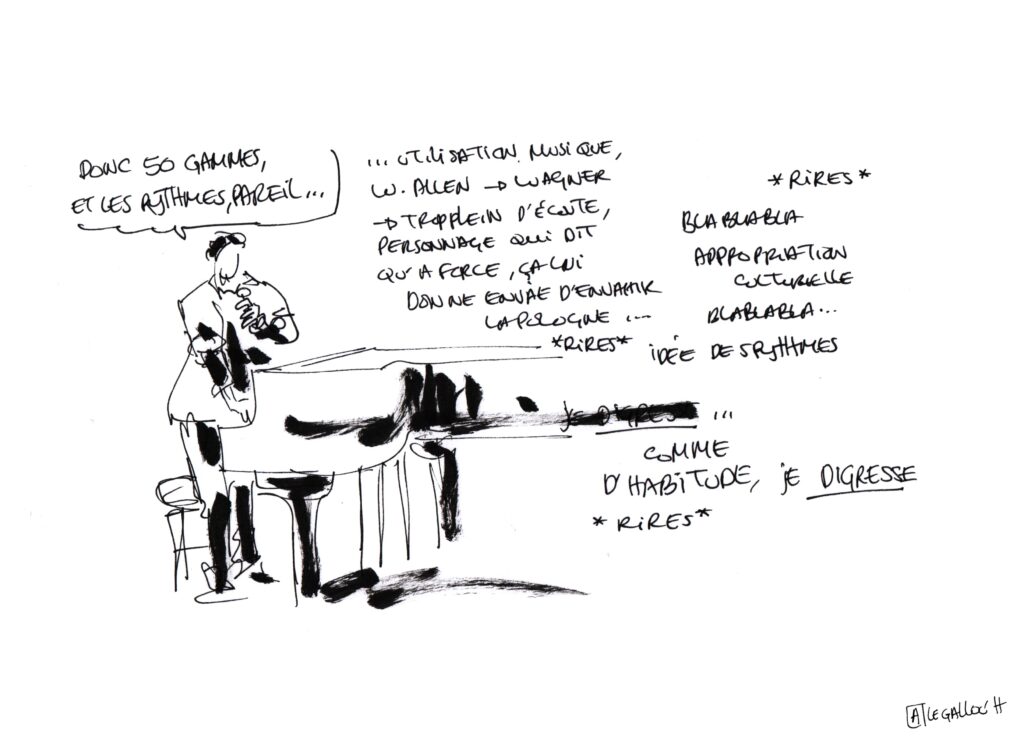 DONC 50 GAMMES,
ET LES RYTHMES, PAREIL...
... UTILISATION MUSIQUE,
W. ALLEN → WAGNER
→ TROP PLEIN D'ÉCOUTE,
PERSONNAGE QUI DIT
QU'A FORCE, ÇA LUI
DONNE ENVIE D'ENVAHIR
LA POLOGNE ...
*RIRES*
*RIRES*
BLABLABLA
APPROPRIATION
CULTURELLE
BLABLABLA...
IDÉE DES RYTHMES
JE DIGRESSE ...
COMME
D'HABITUDE, JE DIGRESSE
*RIRES*
A LEGALLOC'H